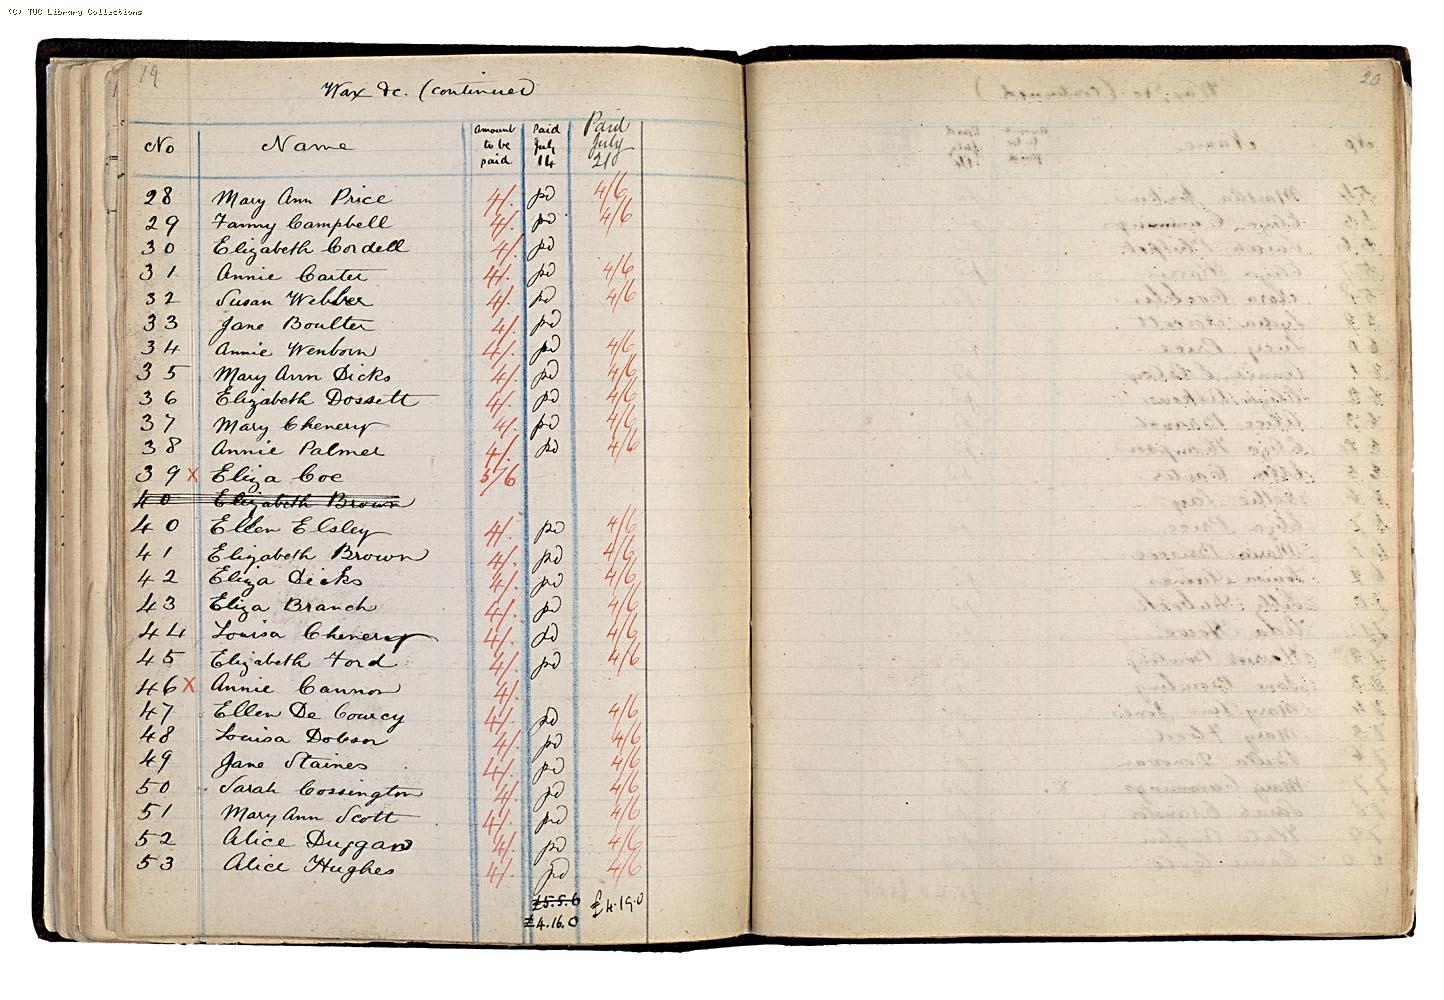 (C) TUC Library Collections
19
Wax &c. (continued)
No Name Amount to be paid Paid July 14 Paid July 21
28 Mary Ann Price 4/. pd 4/6
29 Fanny Campbell 4/. pd 4/6
30 Elizabeth Cordell 4/. pd
31 Annie Carter 4/. pd 4/6
32 Susan Webber 4/. pd 4/6
33 Jane Boulter 4/. pd
34 Annie Wenborn 4/. pd 4/6
35 Mary Ann Dicks 4/. pd 4/6
36 Elizabeth Dossett 4/. pd 4/6
37 Mary Chenery 4/. pd 4/6
38 Annie Palmer 4/. pd 4/6
39 x Eliza Coe 5/6
40 Elizabeth Brown
40 Ellen Elsley 4/. pd 4/6
41 Elizabeth Brown 4/. pd 4/6
42 Eliza Dicks 4/. pd 4/6
43 Eliza Branch 4/. pd 4/6
44 Louisa Chenery 4/. pd 4/6
45 Elizabeth Ford 4/. pd 4/6
46 x Annie Cannon 4/.
47 Ellen De Courcy 4/. pd 4/6
48 Louisa Dobson 4/. pd 4/6
49 Jane Staines 4/. pd 4/6
50 Sarah Cossington 4/. pd 4/6
51 Mary Ann Scott 4/. pd 4/6
52 Alice Duggan 4/. pd 4/6
53 Alice Hughes 4/. pd 4/6
£5.5.6 £4.19.0
£4.16.0
20